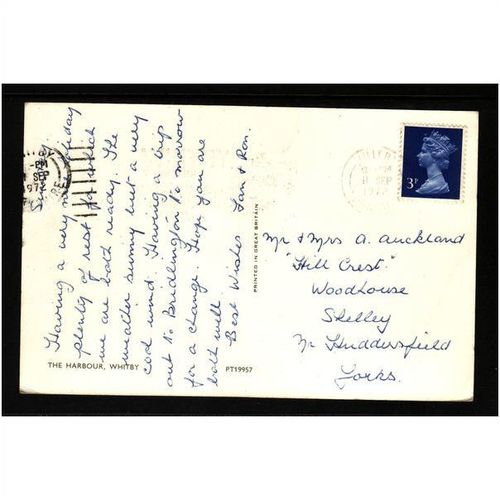 Sunday
Having a very nice holiday
plenty of rest for which
we are both ready. The
weather sunny but a very
cold wind. Having a trip
out to Bridlington to morrow
for a change. Hope you are
both well
Best Wishes Ian & Ron.
THE HARBOUR, WHITBY
PT19957
PRINTED IN GREAT BRITAIN
PM
SEP
1972
WHITBY
PM
SEP
1972
3P
Mr & Mrs A. Auckland
"Hill Crest"
Woodhouse
Shelley
Nr Huddersfield
Yorks.